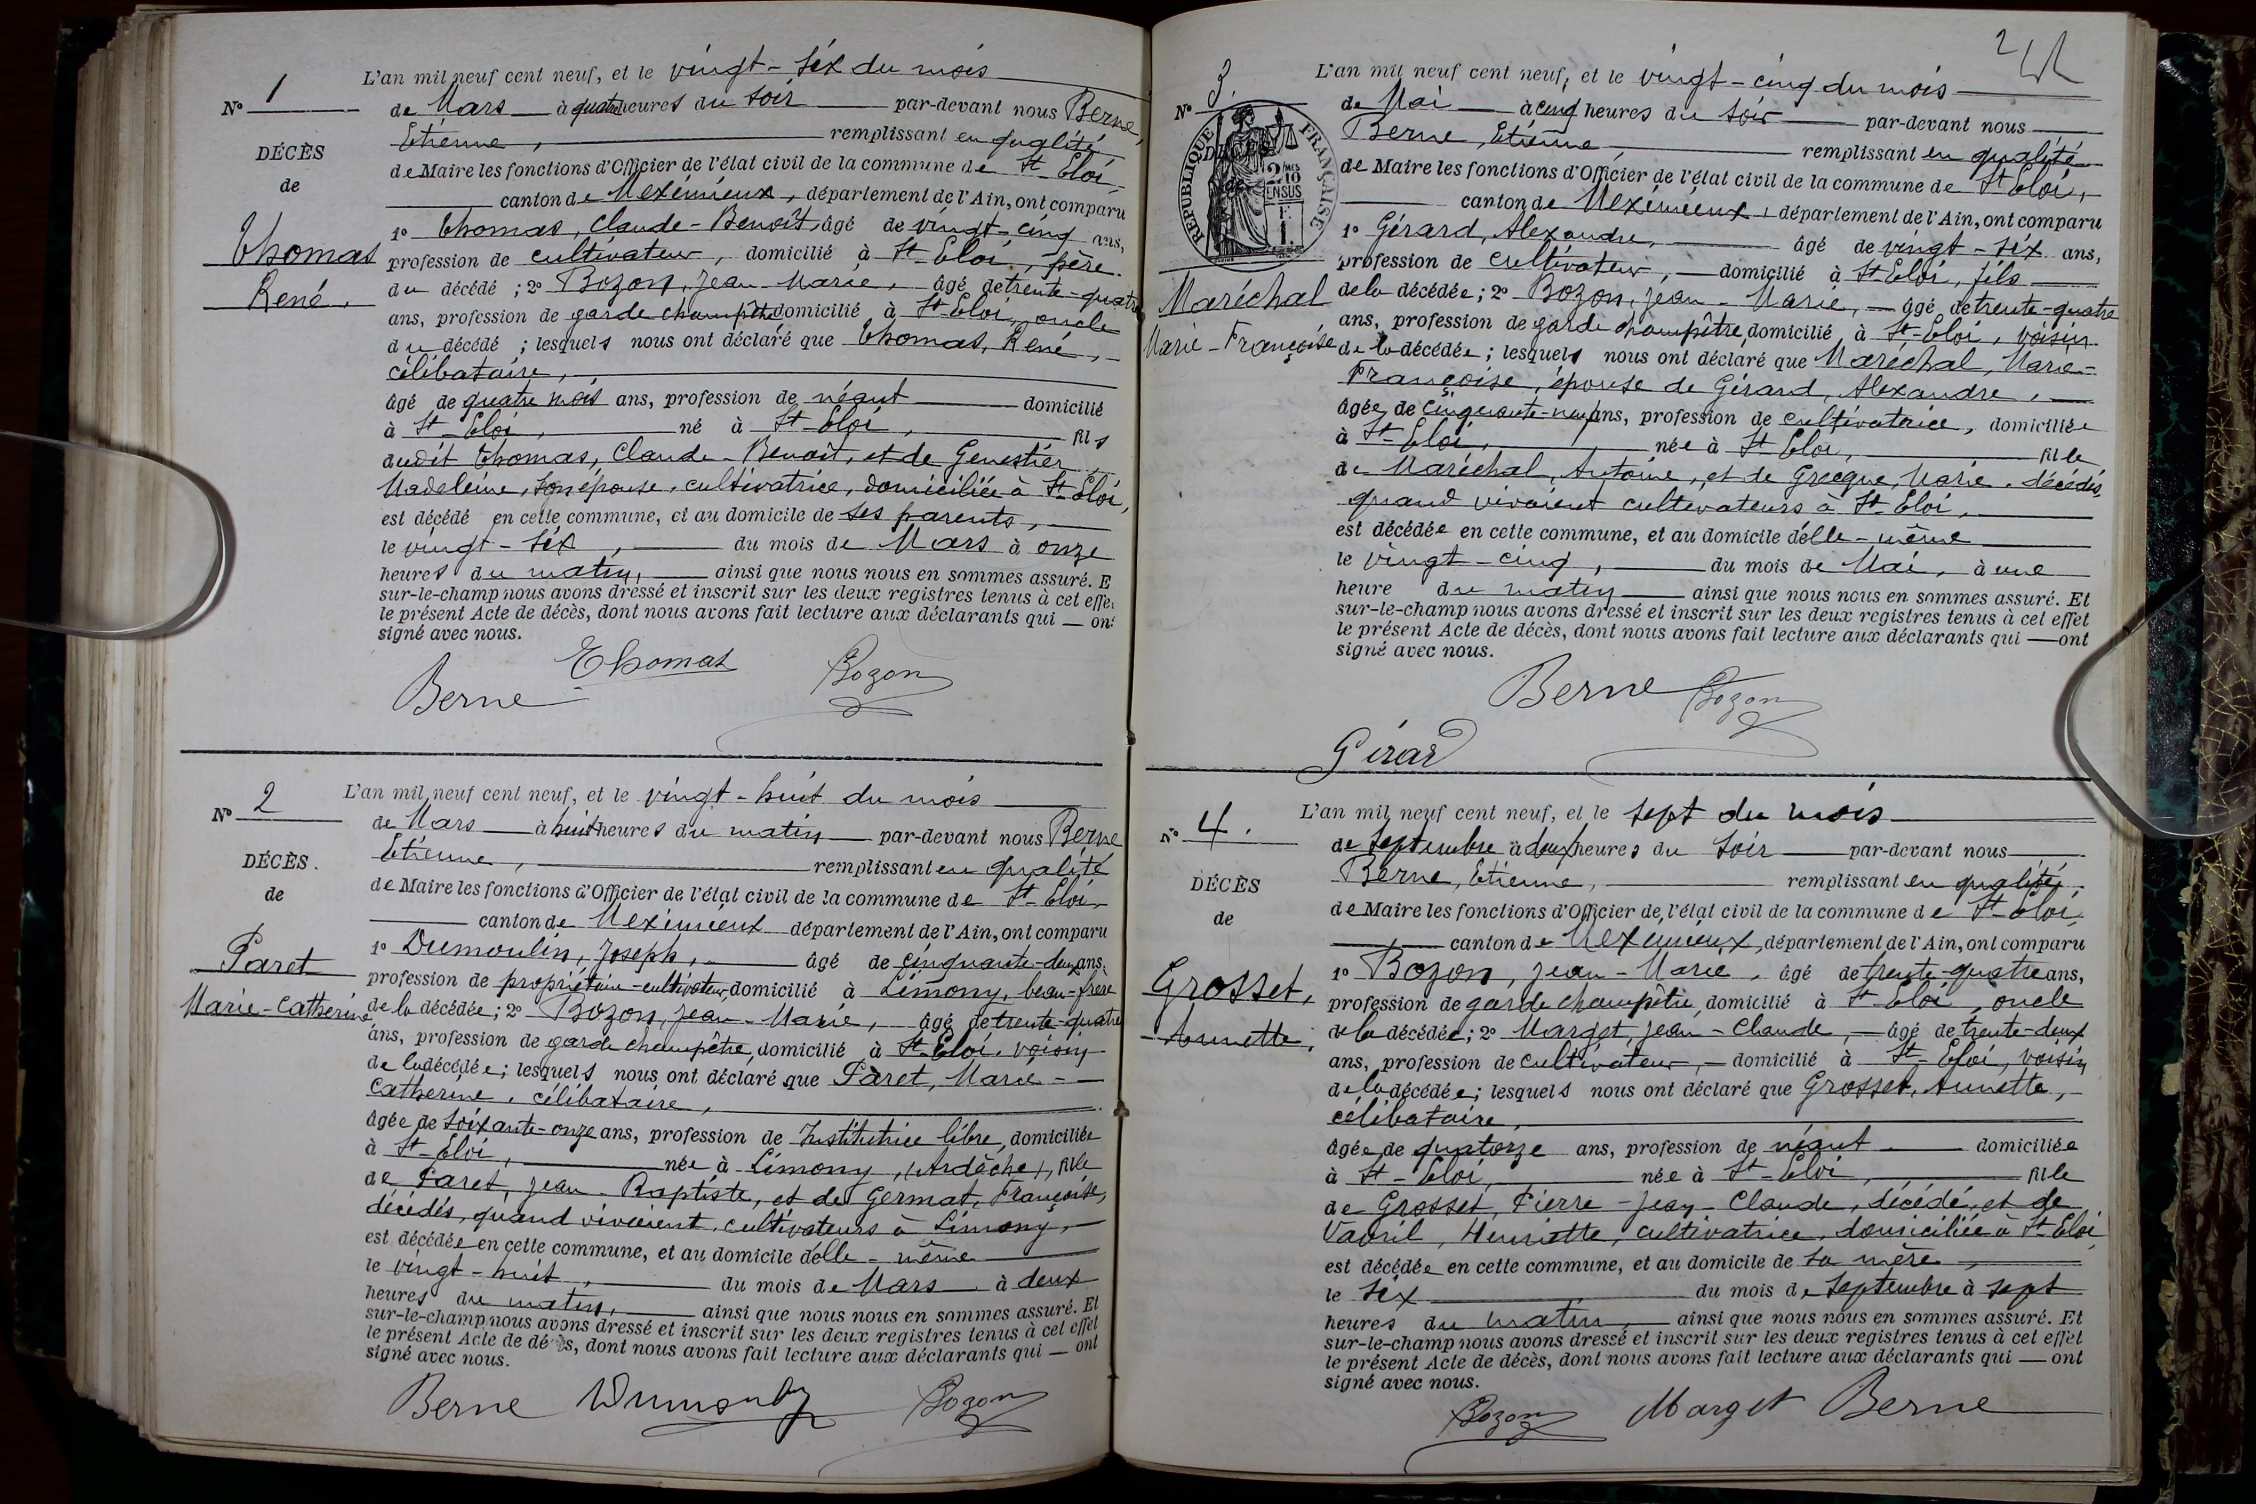 N° 1
DÉCÈS
de
Thomas
René.
L'an mil neuf cent neuf, et le vingt-six du mois
de Mars à quatre heures du soir par-devant nous Berne,
Etienne, remplissant en qualité
de Maire les fonctions d'Officier de l'état civil de la commune de St-Eloi,
canton de Meximieux, département de l'Ain, ont comparu
1° Thomas, Claude-Benoît, âgé de vingt-cinq ans,
profession de cultivateur, domicilié à St-Eloi, père
du décédé; 2° Bozon, Jean-Marie, âgé de trente-quatre
ans, profession de garde champêtre domicilié à St-Eloi, oncle
du décédé; lesquels nous ont déclaré que Thomas, René,
célibataire,
âgé de quatre mois ans, profession de néant domicilié
à St-Eloi, né à St-Eloi, fils
dudit Thomas, Claude-Benoît, et de Genestier
Madeleine, son épouse, cultivatrice, domiciliée à St-Eloi,
est décédé en cette commune, et au domicile de ses parents,
le vingt-six, du mois de Mars à onze
heures du matin, ainsi que nous nous en sommes assuré. E
sur-le-champ nous avons dressé et inscrit sur les deux registres tenus à cet effe
le présent Acte de décès, dont nous avons fait lecture aux déclarants qui — ont
signé avec nous.
Thomas Bozon
Berne
N° 2
DÉCÈS.
de
Paret
Marie-Catherine
L'an mil neuf cent neuf, et le vingt-huit du mois
de Mars à huit heures du matin par-devant nous Berne
Etienne, remplissant en qualité
de Maire les fonctions d'Officier de l'état civil de la commune de St-Eloi,
canton de Meximieux département de l'Ain, ont comparu
1° Dumoulin, Joseph, âgé de cinquante-deux ans,
profession de propriétaire-cultivateur, domicilié à Limony, beau-frère
de la décédée; 2° Bozon, Jean-Marie, âgé de trente-quatre
ans, profession de garde champêtre, domicilié à St-Eloi, voisin
de la décédée; lesquels nous ont déclaré que Paret, Marie-
Catherine, célibataire,
âgée de soixante-onze ans, profession de Institutrice libre, domiciliée
à St-Eloi, née à Limony, (Ardèche), fille
de Paret, Jean-Baptiste, et de Germat, Françoise,
décédés, quand vivaient, cultivateurs à Limony,
est décédée en cette commune, et au domicile d'elle-même
le vingt-huit, du mois de Mars à deux
heures du matin, ainsi que nous nous en sommes assuré. Et
sur-le-champ nous avons dressé et inscrit sur les deux registres tenus à cet effet
le présent Acte de décès, dont nous avons fait lecture aux déclarants qui — ont
signé avec nous.
Berne Dumoulin Bozon
2
N° 3.
RÉPUBLIQUE FRANÇAISE
DÉCÈS
de
2/10 EN SUS
Maréchal
Marie-Françoise
L'an mil neuf cent neuf, et le vingt-cinq du mois
de Mai à cinq heures du soir par-devant nous
Berne, Etienne, remplissant en qualité
de Maire les fonctions d'Officier de l'état civil de la commune de St-Eloi,
canton de Meximieux, département de l'Ain, ont comparu
1° Gérard, Alexandre, âgé de vingt-six ans,
profession de cultivateur, domicilié à St-Eloi, fils
de la décédée; 2° Bozon, Jean-Marie, âgé de trente-quatre
ans, profession de garde champêtre, domicilié à St-Eloi, voisin
de la décédée; lesquels nous ont déclaré que Maréchal, Marie-
Françoise, épouse de Gérard, Alexandre,
âgée de cinquante-neuf ans, profession de cultivatrice, domiciliée
à St-Eloi, née à St-Eloi, fille
de Maréchal, Antoine, et de Grecque, Marie, décédés,
quand vivaient cultivateurs à St-Eloi,
est décédée en cette commune, et au domicile d'elle-même
le vingt-cinq, du mois de Mai, à une
heure du matin ainsi que nous nous en sommes assuré. Et
sur-le-champ nous avons dressé et inscrit sur les deux registres tenus à cet effet
le présent Acte de décès, dont nous avons fait lecture aux déclarants qui — ont
signé avec nous.
Berne Bozon
Girard
N° 4.
DÉCÈS
de
Grosset,
Annette,
L'an mil neuf cent neuf, et le sept du mois
de Septembre à deux heures du soir par-devant nous
Berne, Etienne, remplissant en qualité
de Maire les fonctions d'Officier de l'état civil de la commune de St-Eloi,
canton de Meximieux, département de l'Ain, ont comparu
1° Bozon, Jean-Marie, âgé de trente-quatre ans,
profession de garde champêtre, domicilié à St-Eloi, oncle
de la décédée; 2° Marget, Jean-Claude, âgé de trente-deux
ans, profession de cultivateur, domicilié à St-Eloi, voisin
de la décédée; lesquels nous ont déclaré que Grosset, Annette,
célibataire,
âgée de quatorze ans, profession de néant domiciliée
à St-Eloi, née à St-Eloi, fille
de Grosset, Pierre-Jean-Claude, décédé, et de
Vavril, Henriette, cultivatrice, domiciliée à St-Eloi,
est décédée en cette commune, et au domicile de sa mère,
le six du mois de Septembre à sept
heures du matin, ainsi que nous nous en sommes assuré. Et
sur-le-champ nous avons dressé et inscrit sur les deux registres tenus à cet effet
le présent Acte de décès, dont nous avons fait lecture aux déclarants qui — ont
signé avec nous.
Bozon Marget Berne